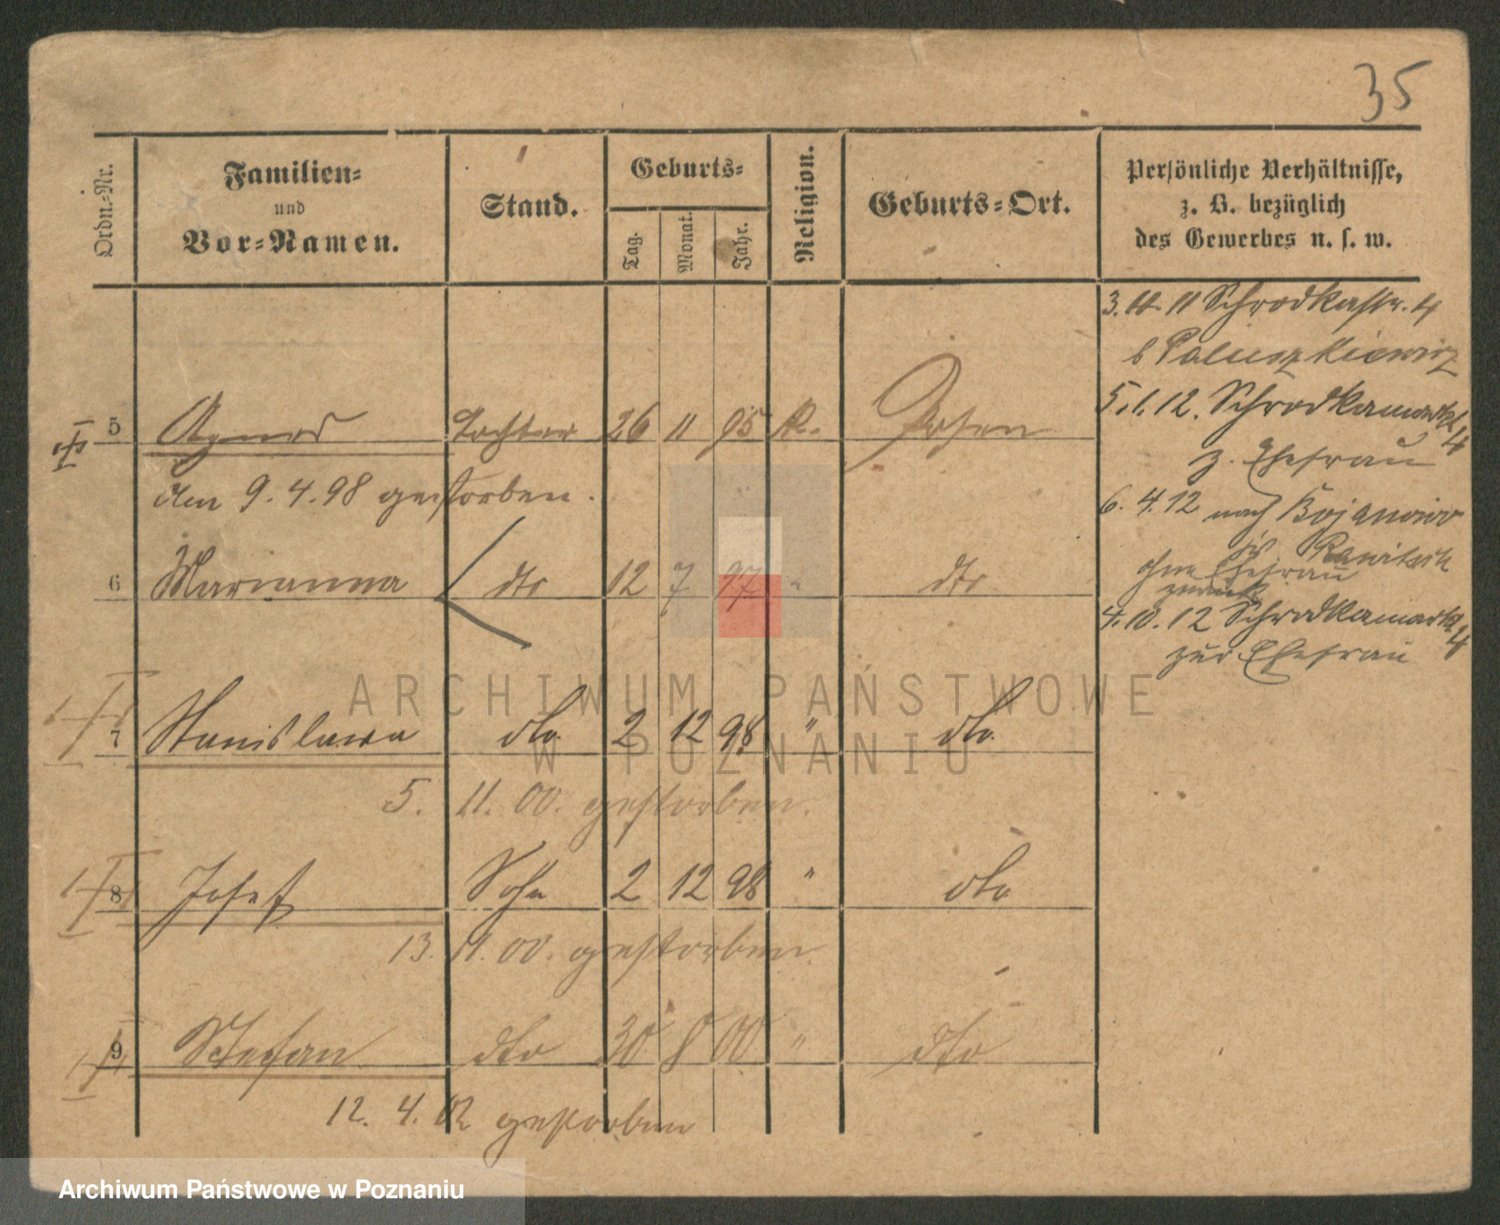 35
Ordn.-Nr.
Familien-
und
Vor-Namen.
Stand.
Geburts-
Tag.
Monat.
Jahr.
Religion.
Geburts-Ort.
Persönliche Verhältnisse,
z. B. bezüglich
des Gewerbes u. s. w.
3. 11. 11 Schrodkastr. 4
b Paluszkiewicz
5. 1. 12. Schrodkamarkt 4
z. Ehefrau
6. 4. 12 nach Bojanowo
Rawitsch
ohne Ehefrau
zurück
4. 10. 12 Schrodkamarkt 4
zur Ehefrau
5 Agnes Tochter 26 11 95 K. Posen
Am 9. 4. 98 gestorben.
6 Marianna dto 12 7 97 " dto
7 Stanislawa dto 2 12 98 " dto
5. 11. 00. gestorben.
8 Josef Sohn 2 12 98 " dto
13. 11. 00. gestorben.
9 Stefan dto 30 8 00 " dto
12. 4. 02 gestorben
ARCHIWUM PAŃSTWOWE
W POZNANIU
Archiwum Państwowe w Poznaniu